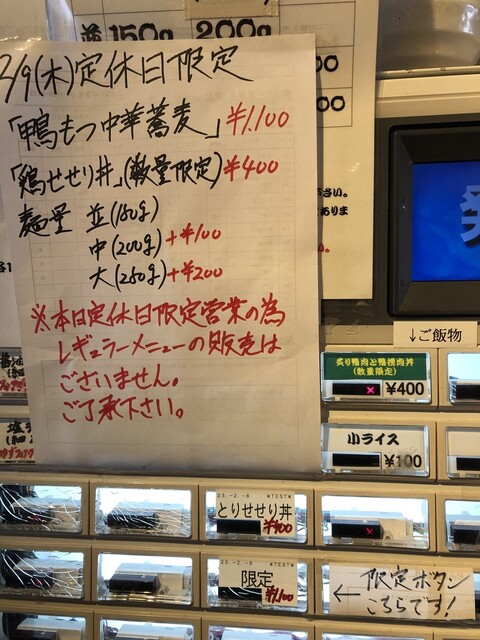 並 150g 200g
2/9(木)定休日限定
「鴨もつ中華蕎麦」¥1,100
「鶏せせり丼」(数量限定)¥400
麺量 並(150g)
中(200g)+¥100
大(250g)+¥200
※本日定休日限定営業の為
レギュラーメニューの販売は
ございません。
ご了承下さい。
↓ご飯物
炙り鴨肉と鴨挽肉丼
(数量限定)
¥400
小ライス
¥100
23.-2.-8 *TEST*
とりせせり丼
¥400
23.-2.-8 *TEST*
限定
¥1,100
← 限定ボタン
こちらです!